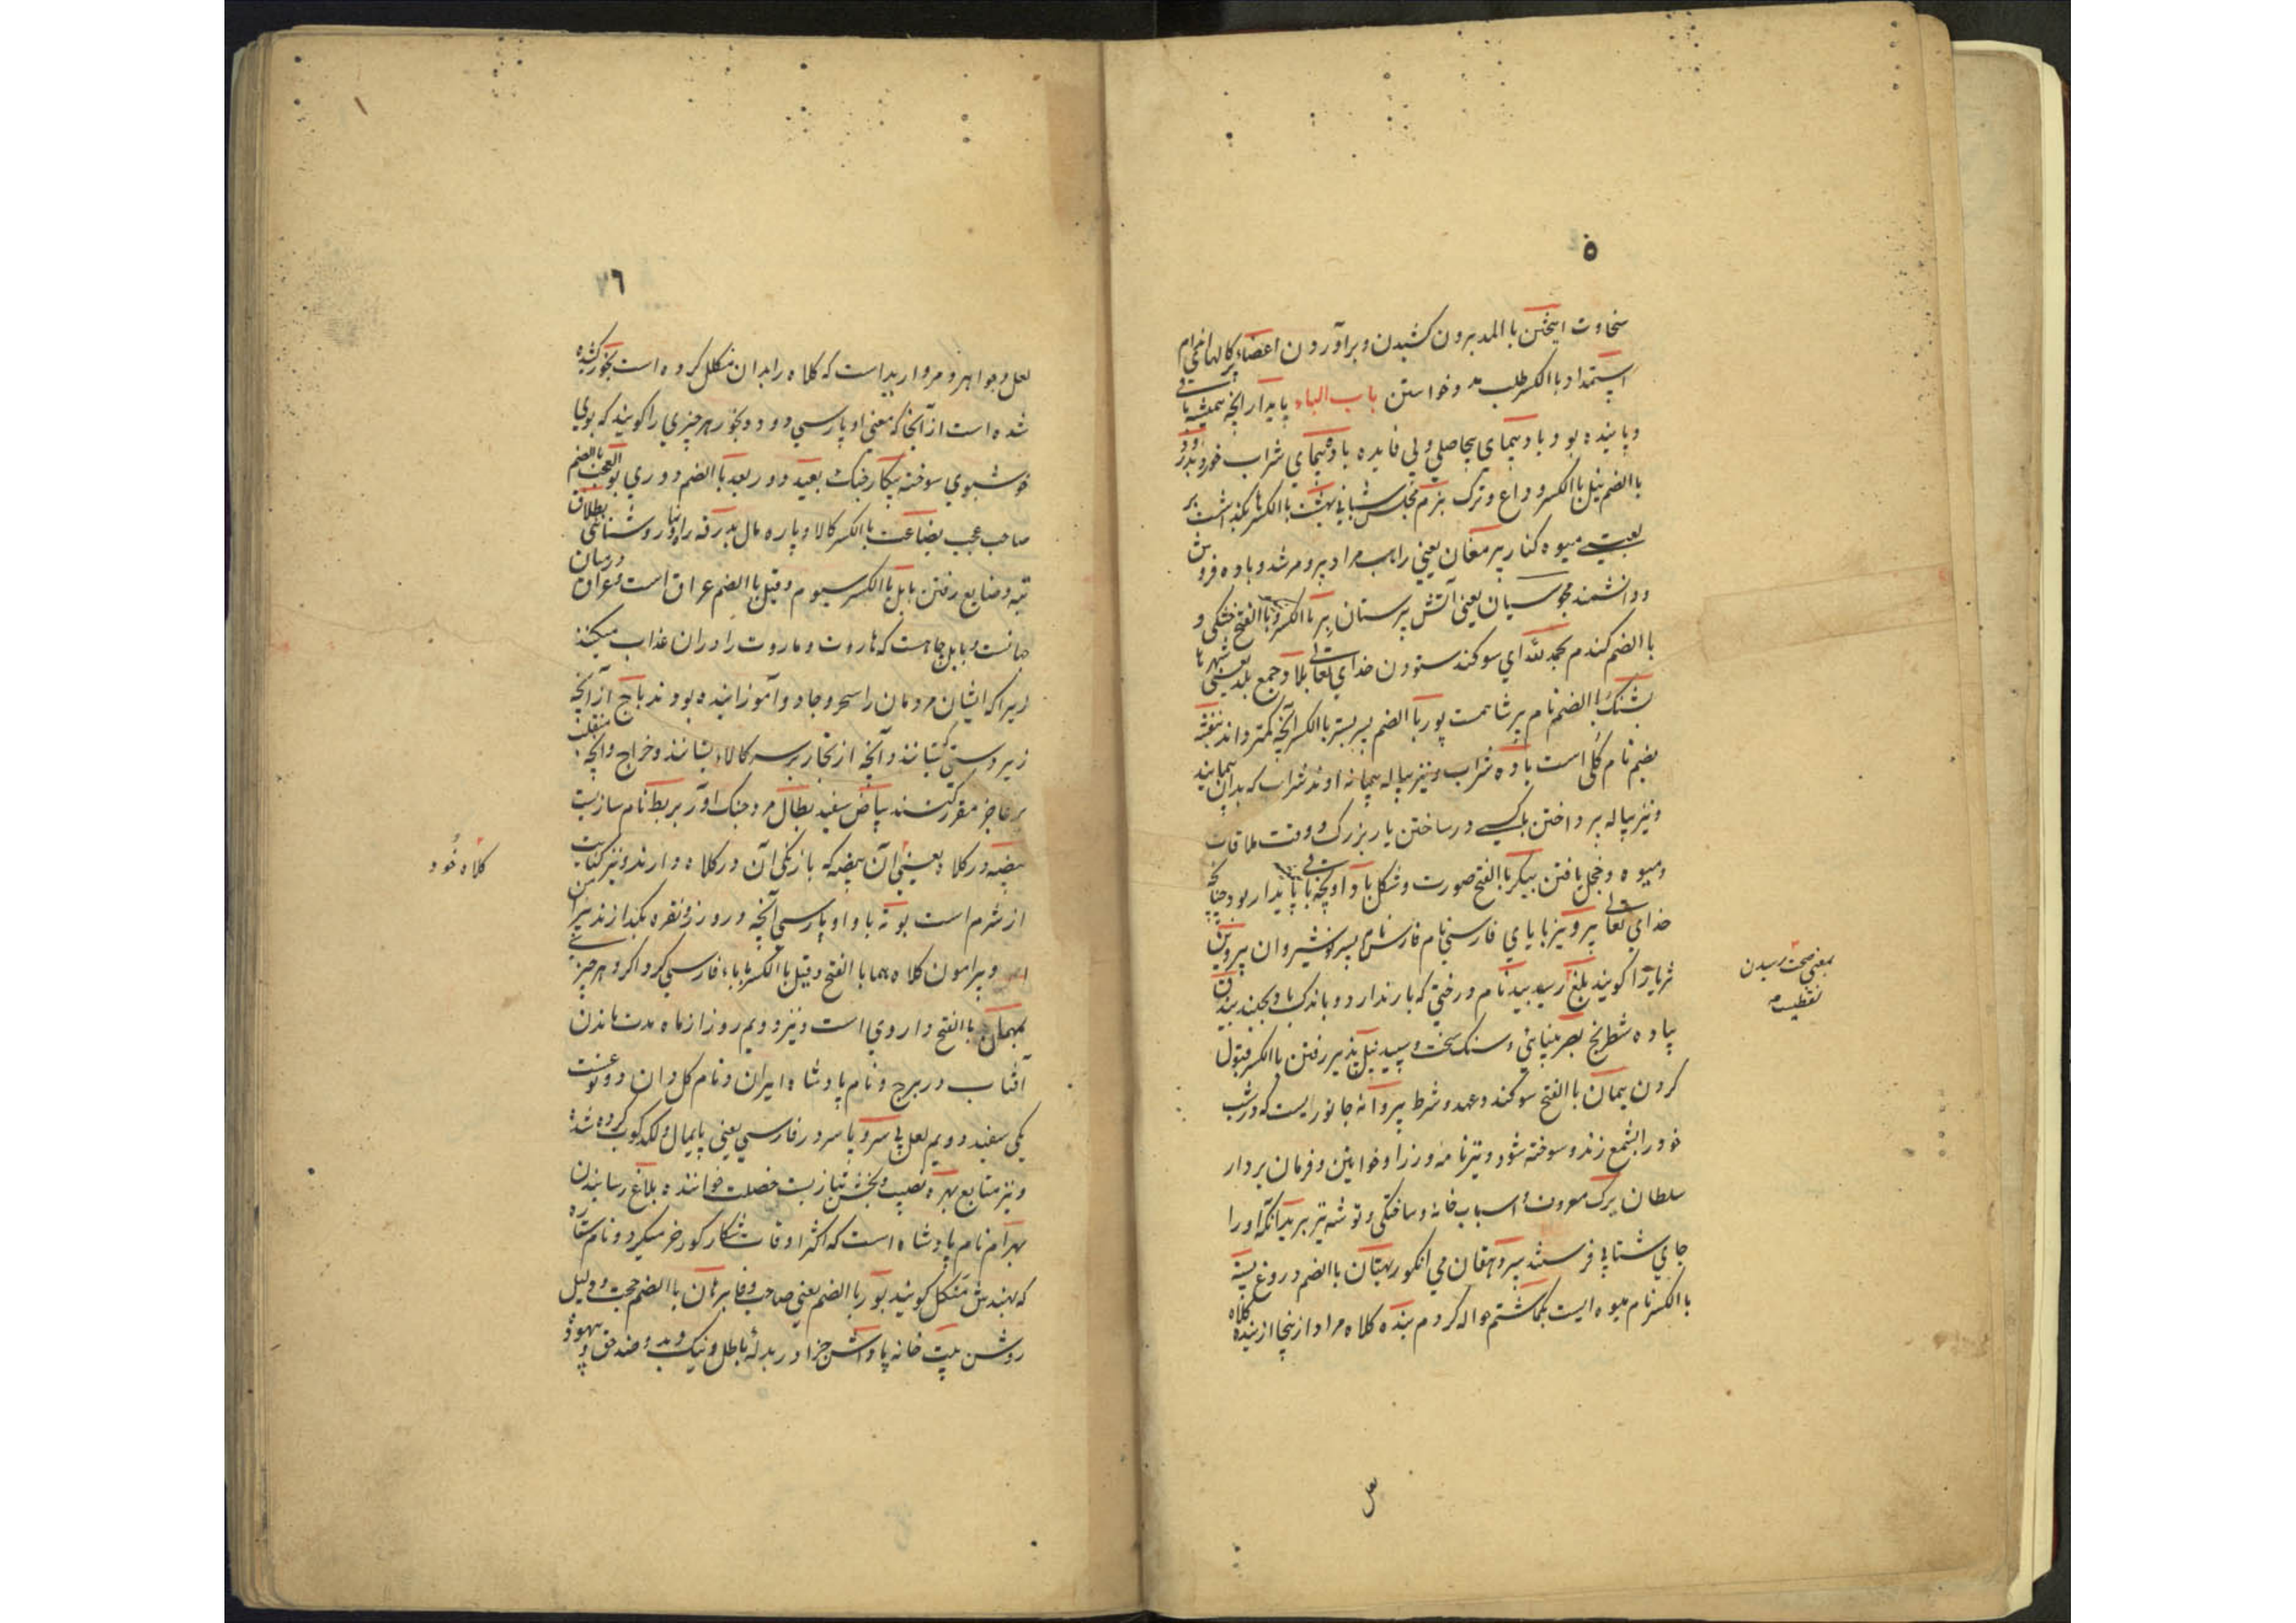 ۵
سخاوت ایختن باالمد بیرون کشیدن و برآوردن اعضاء کالبها اندام
استمداد باالکسر طلب مدد و خواستن باب الباء پایدار آنچه همیشه باقی
و پاینده بود بادپیمای بیحاصلی و بی فایده باده پیمای شراب خور و بدرود
باالضم نیل باالکسر وداع و ترک بزم مجلس شبانی بهشت باالکسر بگذاشت
یعنی میوه کنار پیر مغان یعنی راهب مراد پیر و مرشد و باده فروش
و دانشمند مجوسیان یعنی آتش پرستان بر باالکسر و باالفتح خشکی و
باالضم گندم بحمدلله ای سوکند ستودن خدای تعالی بلاد جمع بلد یعنی شهرها
پشنگ باالضم نام پر شاهست پور باالضم پسر بستر باالکسر آنچه گسترداند بنفشه
بضم نام گلی است باده شراب و نیز پیاله پیمانه اوند شراب که بدان پیمایند
و نیز پیاله پرداختن باکسی در ساختن یار بزرگ و وقت ملاقات
و میوه و خجل یافتن پیکر باالفتح صورت و شکل باد او پنجه باقی پایدار بود چنانچه
خدای تعالی پرویز بایای فارسی نام فارس نام پسر نوشیروان پروین
ثریا را گویند بلغ رسید بید نام درختی که بار ندارد و باندک باد بجنبد بیذق
پیاده شطرنج بصر بینایی و سنگ سخت و سپید نیل پذیر رفتن باالکسر قبول
کردن پیمان باالفتح سوکند و عهد و شرط پروانه جانوریست که در شب
خود را بشمع زند و سوخته شود و نیز نامه وزرا و خوانین و فرمان بردار
سلطان برگ معروف و اسباب خانه و ساختگی و توشه نیز برید آنکه او را
جای شتابی فرستند پیر دهقان می انگور بهتان باالضم دروغ پسته
باالکسر نام میوه ایست بگماشتم حواله کردم بنده کلاه مراد از پنجا از بنده کلاه
بمعنی صحت رسیدن
لعل
۷۶
لعل و جواهر و مروارید است که کلاه را بدان مکلل کرده است بخور کشیده
شده است از آنجا که معنی او پارسی دود و بخور هر چیزی را گویند که بوی
خوشبوی سوخته پیکار جنگ بعید دور بعد باالضم دوری بوالعجب باالضم
صاحب عجب بضاعت باالکسر کالا و پاره مال بدرقه راه نما روشنایی بطلان
تبه و ضایع رفتن بابل باالکسر سیوم و قیل باالضم عراق است و عراق درمیان
جهانست و بابل چاهست که هاروت و ماروت را دران عذاب میکنند
زیرا که ایشان مردمان را سحر و جادو آموزانیده بودند باج از آنچه
زیر دستی ستانند و آنچه از تجار بر سر کالا بستانند و خراج و آنچه
بر عاجز مقرر کنند بیاض سفید بطال مرد جنگ آور بربط نام سازیست
بیضه در کلاه یعنی آن بیضه که بازیگر آن در کلاه دارند و نیز کنایت
از شرم است بوته با واو پارسی آنچه درو زر و نقره بگدازند پیرامن
و پیرامون کلاه هما باالفتح و قیل باالکسر بابای فارسی گرداگرد هر چیز
بهمان باالفتح داروی است و نیز دویم روز از ماه مدت ماندن
آفتاب در برج و نام پادشاه ایران و نام گل و ان دو نوعست
یکی سفید دویم لعل پی سر و پا سر در فارسی یعنی پایمال و لکد کوب کرده شد
و نیز متابع بهره نصیب و بخش نیاز بست خصلت خوانده بلاغ رسانیدن
بهرام نام پادشاه است که اکثر اوقات شکار گورخر میکرد و نام ستاره
که بهندش منگل گویند بور باالضم یعنی صاحب وفا برهان باالضم حجت و دلیل
روشن بیت خانه پاداش جزا در بدله باطل و نیک و بد
کلاه خُود